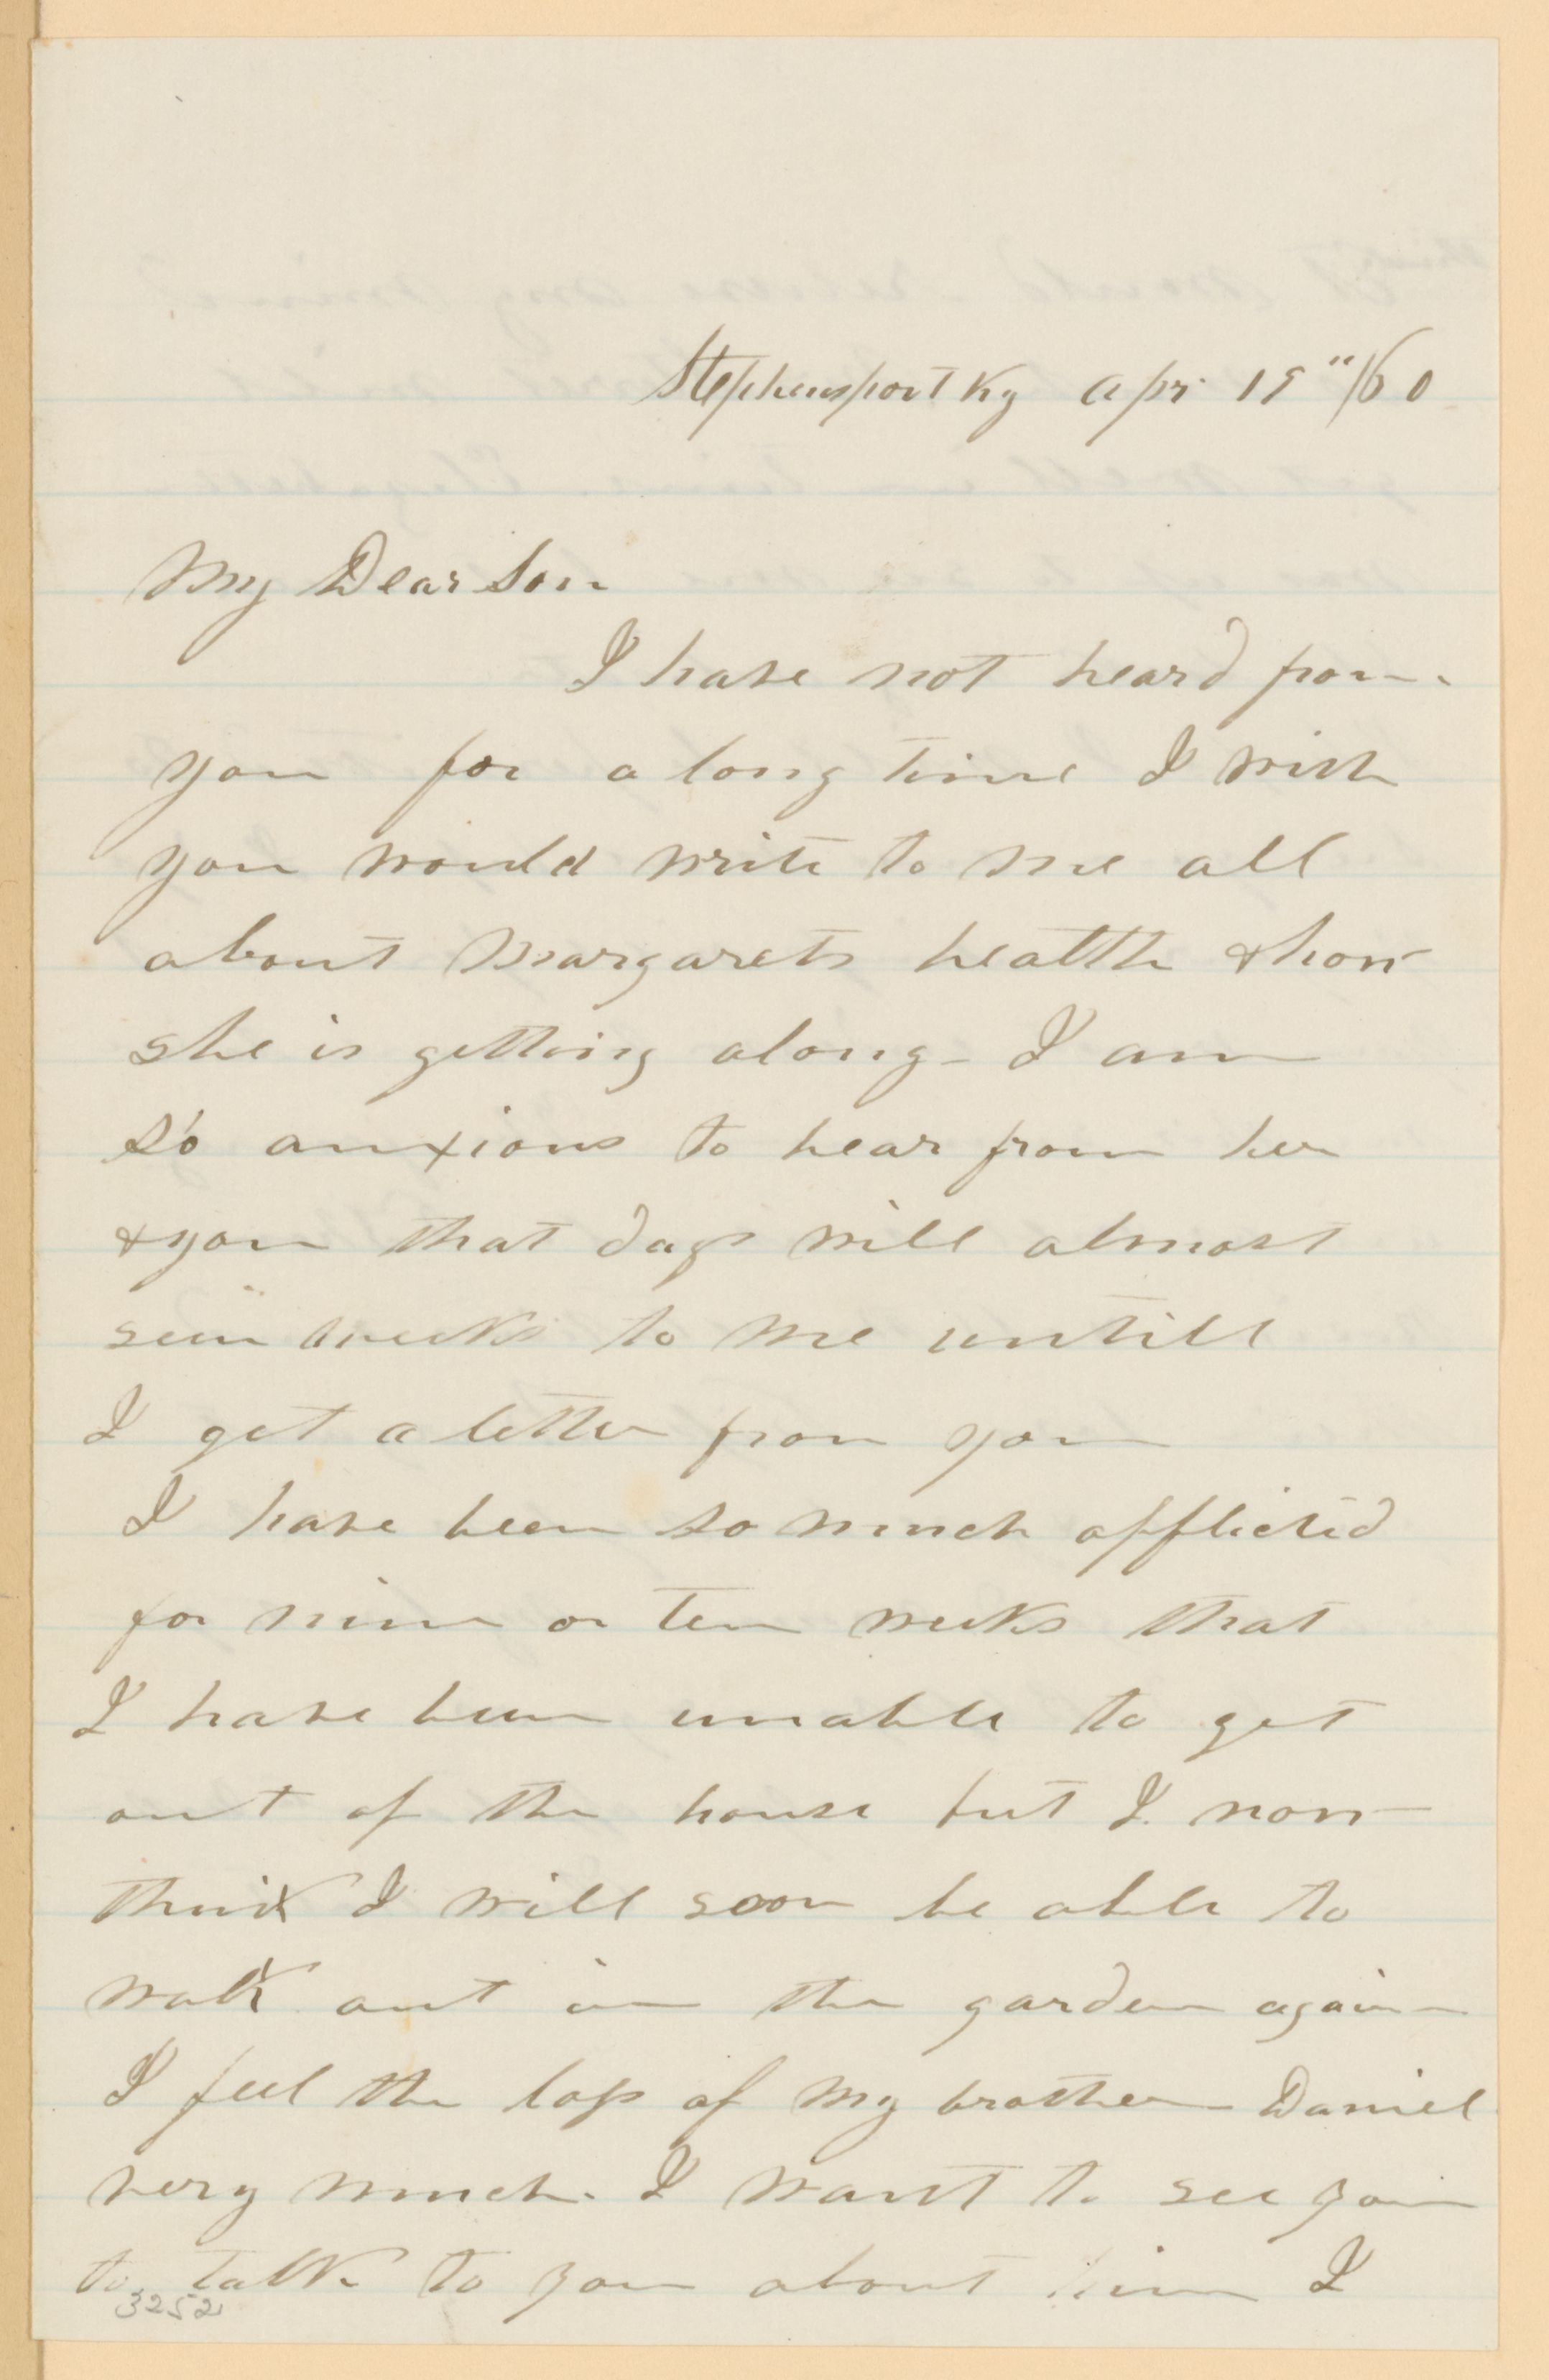 Stephensport Ky Apr 19"/60
My Dear Son
I have not heard from
you for a long time I wish
you would write to me all
about Margarets health & how
she is getting along - I am
so anxious to hear from her
& you that days will almost
seem weeks to me untill
I get a letter from you
I have been so much afflicted
for nine or ten weeks that
I have been unable to get
out of the house but I now
think I will soon be able to
walk out in the garden again
I feel the loss of my brother Daniel
very much. I want to see you
to talk to you about him I
3252